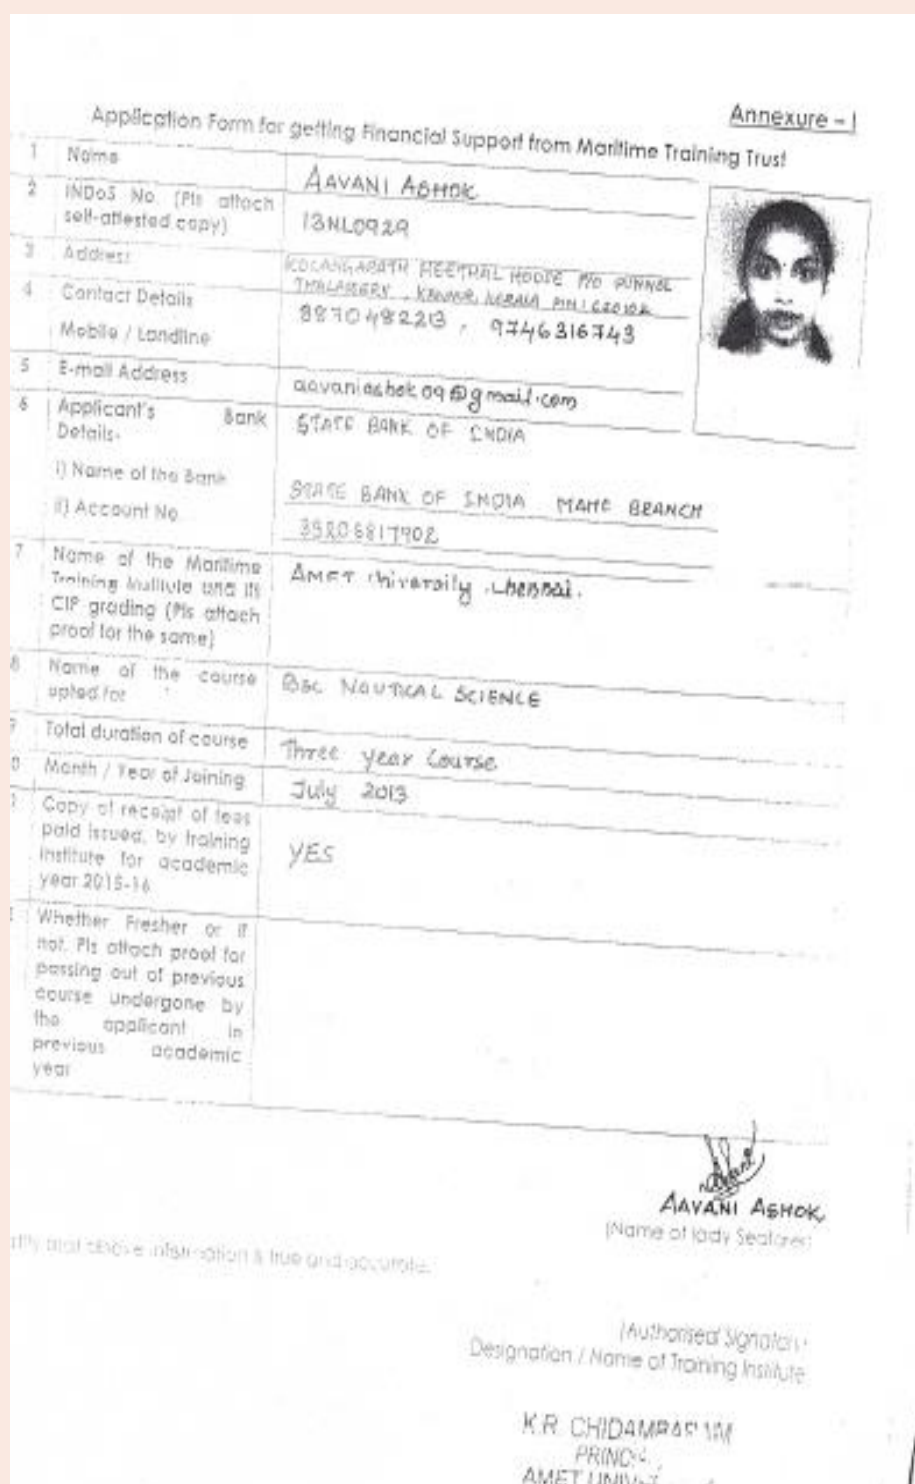 Annexure - I
Application Form for getting Financial Support from Maritime Training Trust
1 Name AAVANI ASHOK
2 INDoS No. (Pls attach
self-attested copy) 13NL0929
3 Address MEETHAL HOUSE P/O PUNNOL
THALASSERY, KANNUR, KERALA PIN:
4 Contact Details
Mobile / Landline 8870482213, 9746316743
5 E-mail Address aavaniashok09@gmail.com
6 Applicant's Bank
Details- STATE BANK OF INDIA
i) Name of the Bank STATE BANK OF INDIA MAHE BRANCH
ii) Account No
7 Name of the Maritime
Training Institute and its
CIP grading (Pls attach
proof for the same) AMET University, Chennai.
8 Name of the course
opted for BSC NAUTICAL SCIENCE
Total duration of course Three year Course
0 Month / Year of Joining July 2013
Copy of receipt of fees
paid issued, by training
institute for academic
year 2015-16 YES
Whether Fresher or if
not, Pls attach proof for
passing out of previous
course undergone by
the applicant in
previous academic
year
AAVANI ASHOK
(Name of lady Seafarer)
that above information is true and accurate.
(Authorised Signatory
Designation / Name of Training Institute
K.R. CHIDAMBARAM
AMET